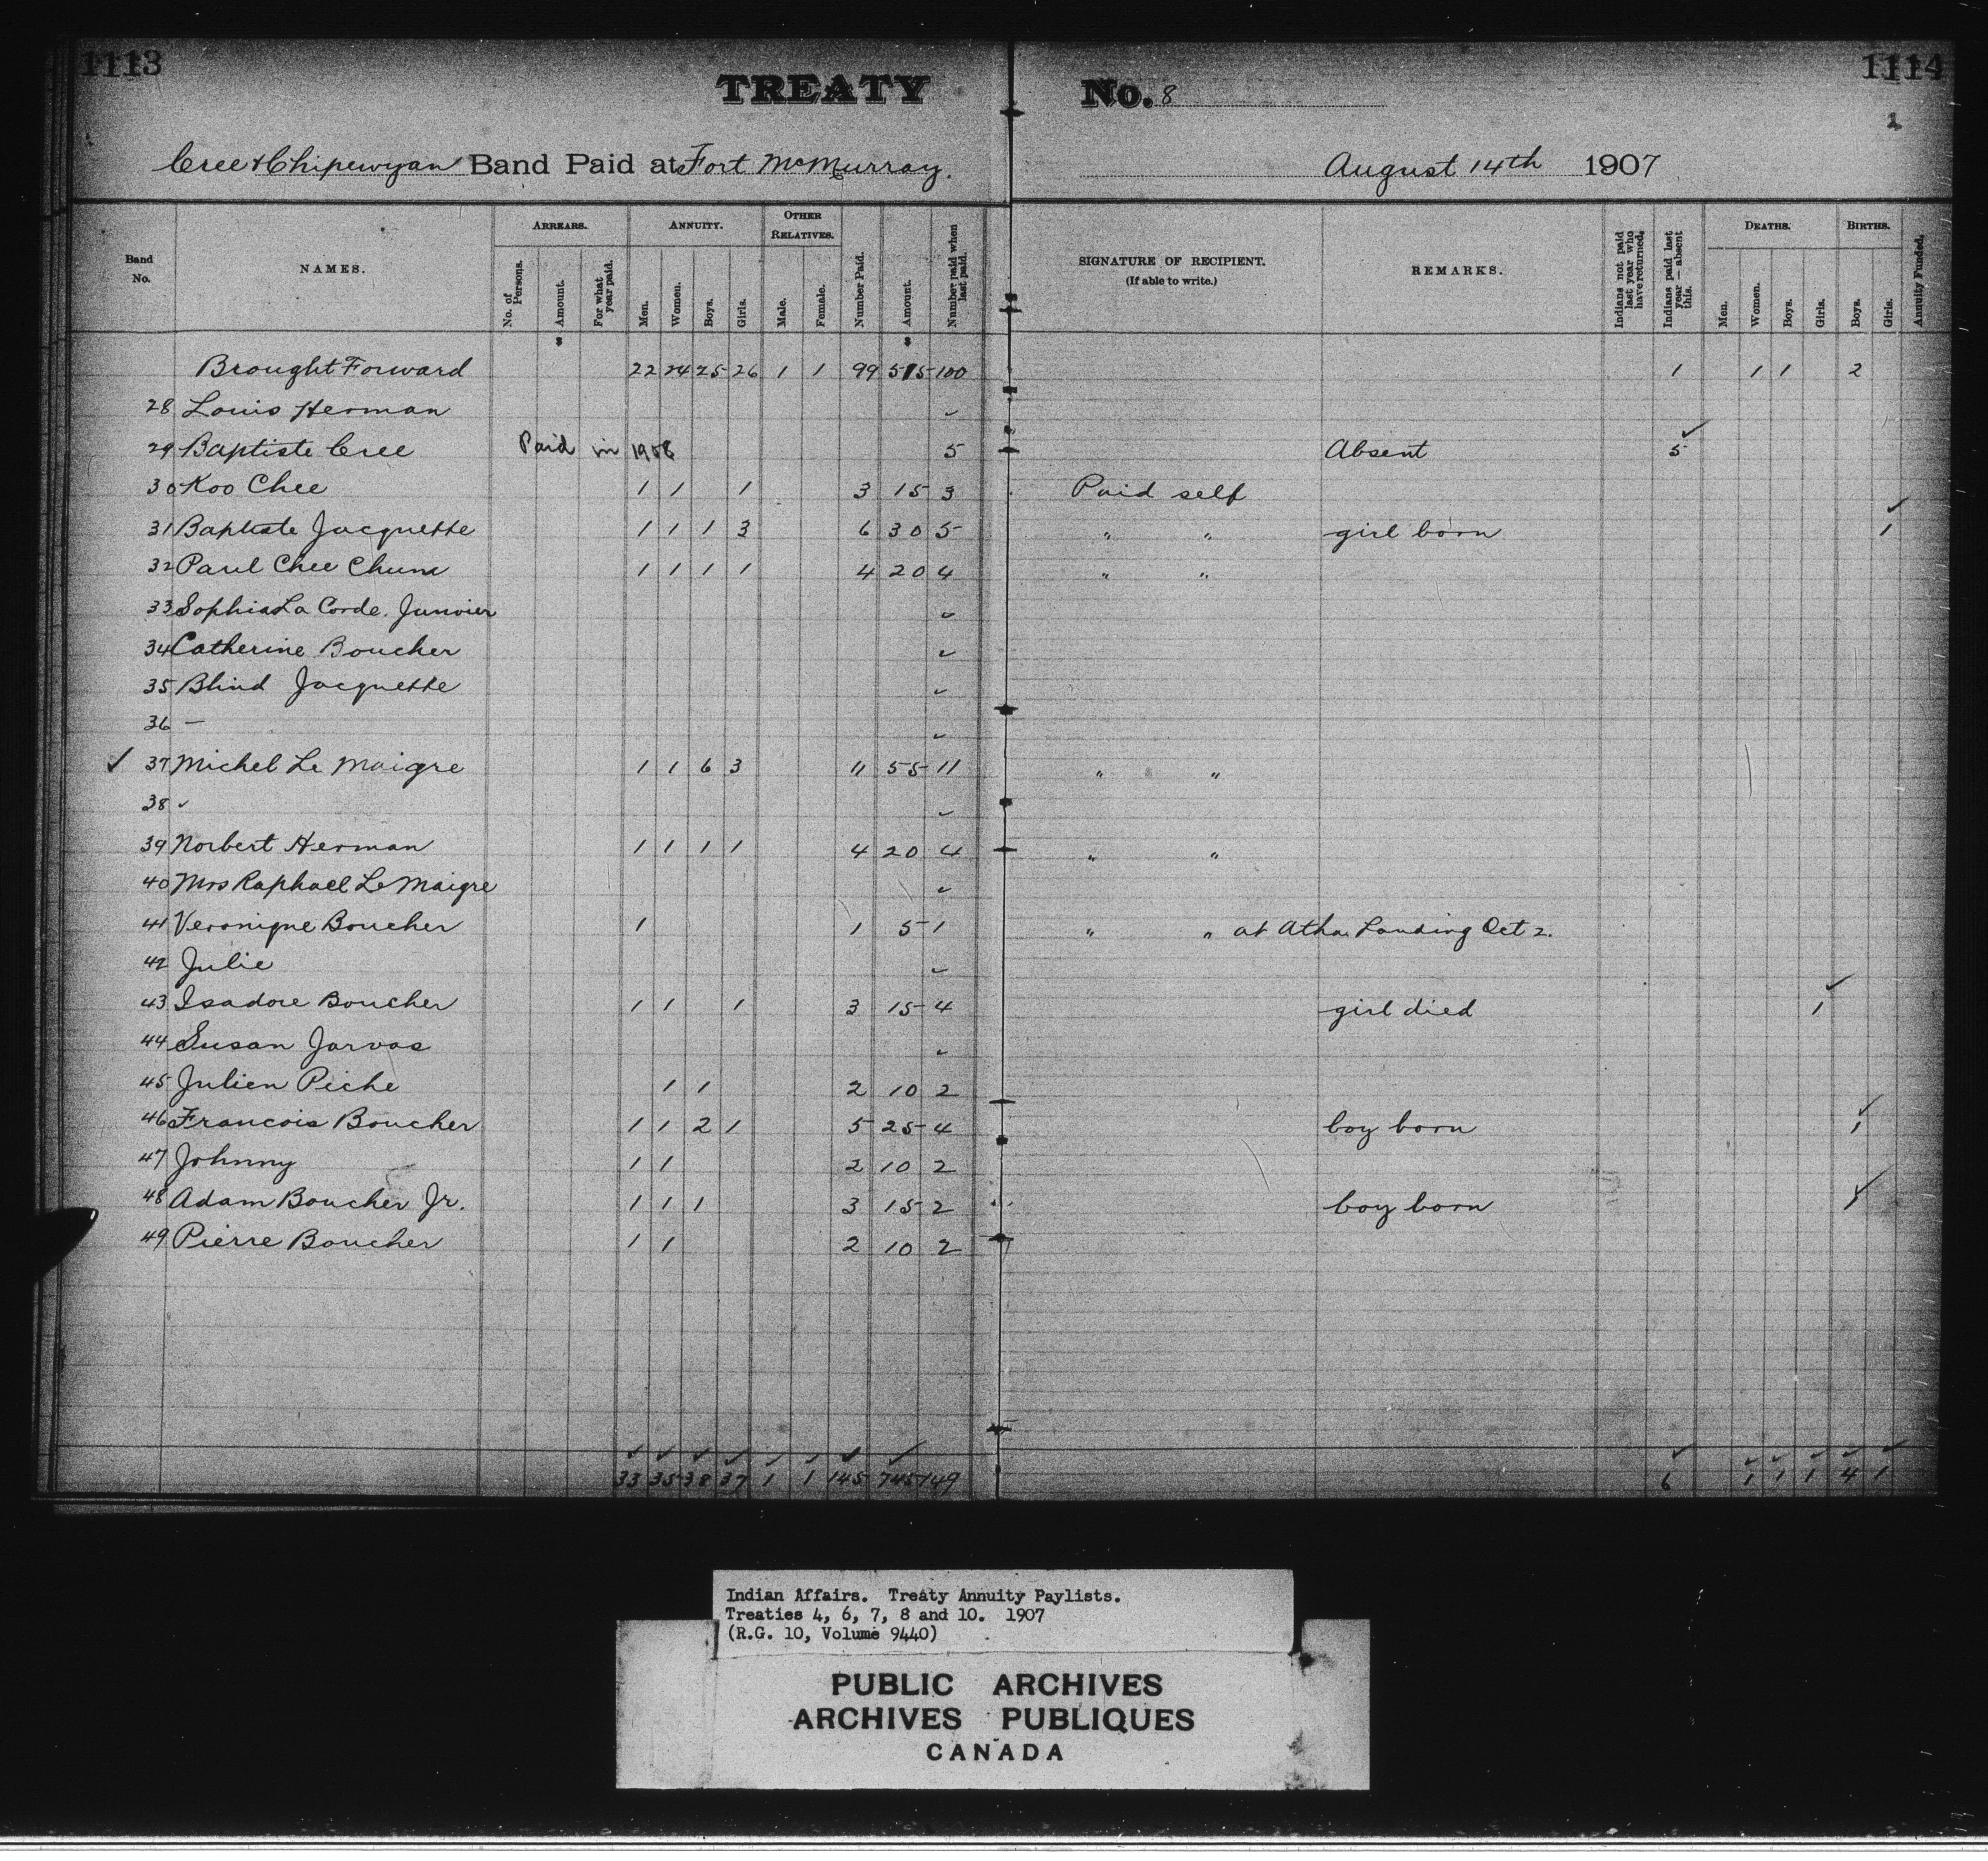 1113 1114
TREATY No. 8
2
Cree & Chipewyan Band Paid at Fort McMurray. August 14th 1907
Band No. NAMES. ARREARS. No. of Persons. Amount. For what year paid. ANNUITY. Men. Women. Boys. Girls. OTHER RELATIVES. Male. Female. Number Paid. Amount. Number paid when last paid. SIGNATURE OF RECIPIENT. (If able to write.) REMARKS. Indians not paid last year who have returned. Indians paid last year—absent this. DEATHS. Men. Women. Boys. Girls. BIRTHS. Boys. Girls. Annuity Funded.
$ $
Brought Forward 22 24 25 26 1 1 99 515 100 1 1 1 2
28 Louis Herman ✓
29 Baptiste Cree Paid in 1908 5 Absent 5 ✓
30 Koo Chee 1 1 1 3 15 3 Paid self
31 Baptiste Jacquette 1 1 1 3 6 30 5 " " girl born 1 ✓
32 Paul Chee Chum 1 1 1 1 4 20 4 " "
33 Sophia La Corde. Junvier ✓
34 Catherine Boucher ✓
35 Blind Jacquette ✓
36 — ✓
✓ 37 Michel Le Maigre 1 1 6 3 11 55 11 " "
38 ✓ ✓
39 Norbert Herman 1 1 1 1 4 20 4 " "
40 Mrs Raphael Le Maigre ✓
41 Veronique Boucher 1 1 5 1 " " at Atha. Landing Oct 2.
42 Julie ✓
43 Isadore Boucher 1 1 1 3 15 4 girl died 1 ✓
44 Susan Jarvas ✓
45 Julien Piche 1 1 2 10 2
46 Francois Boucher 1 1 2 1 5 25 4 boy born 1 ✓
47 Johnny 1 1 2 10 2
48 Adam Boucher Jr. 1 1 1 3 15 2 boy born 1 ✓
49 Pierre Boucher 1 1 2 10 2
33 35 38 37 1 1 145 745 149 6 1 1 1 4 1
Indian Affairs. Treaty Annuity Paylists.
Treaties 4, 6, 7, 8 and 10. 1907
(R.G. 10, Volume 9440)
PUBLIC ARCHIVES
ARCHIVES PUBLIQUES
CANADA